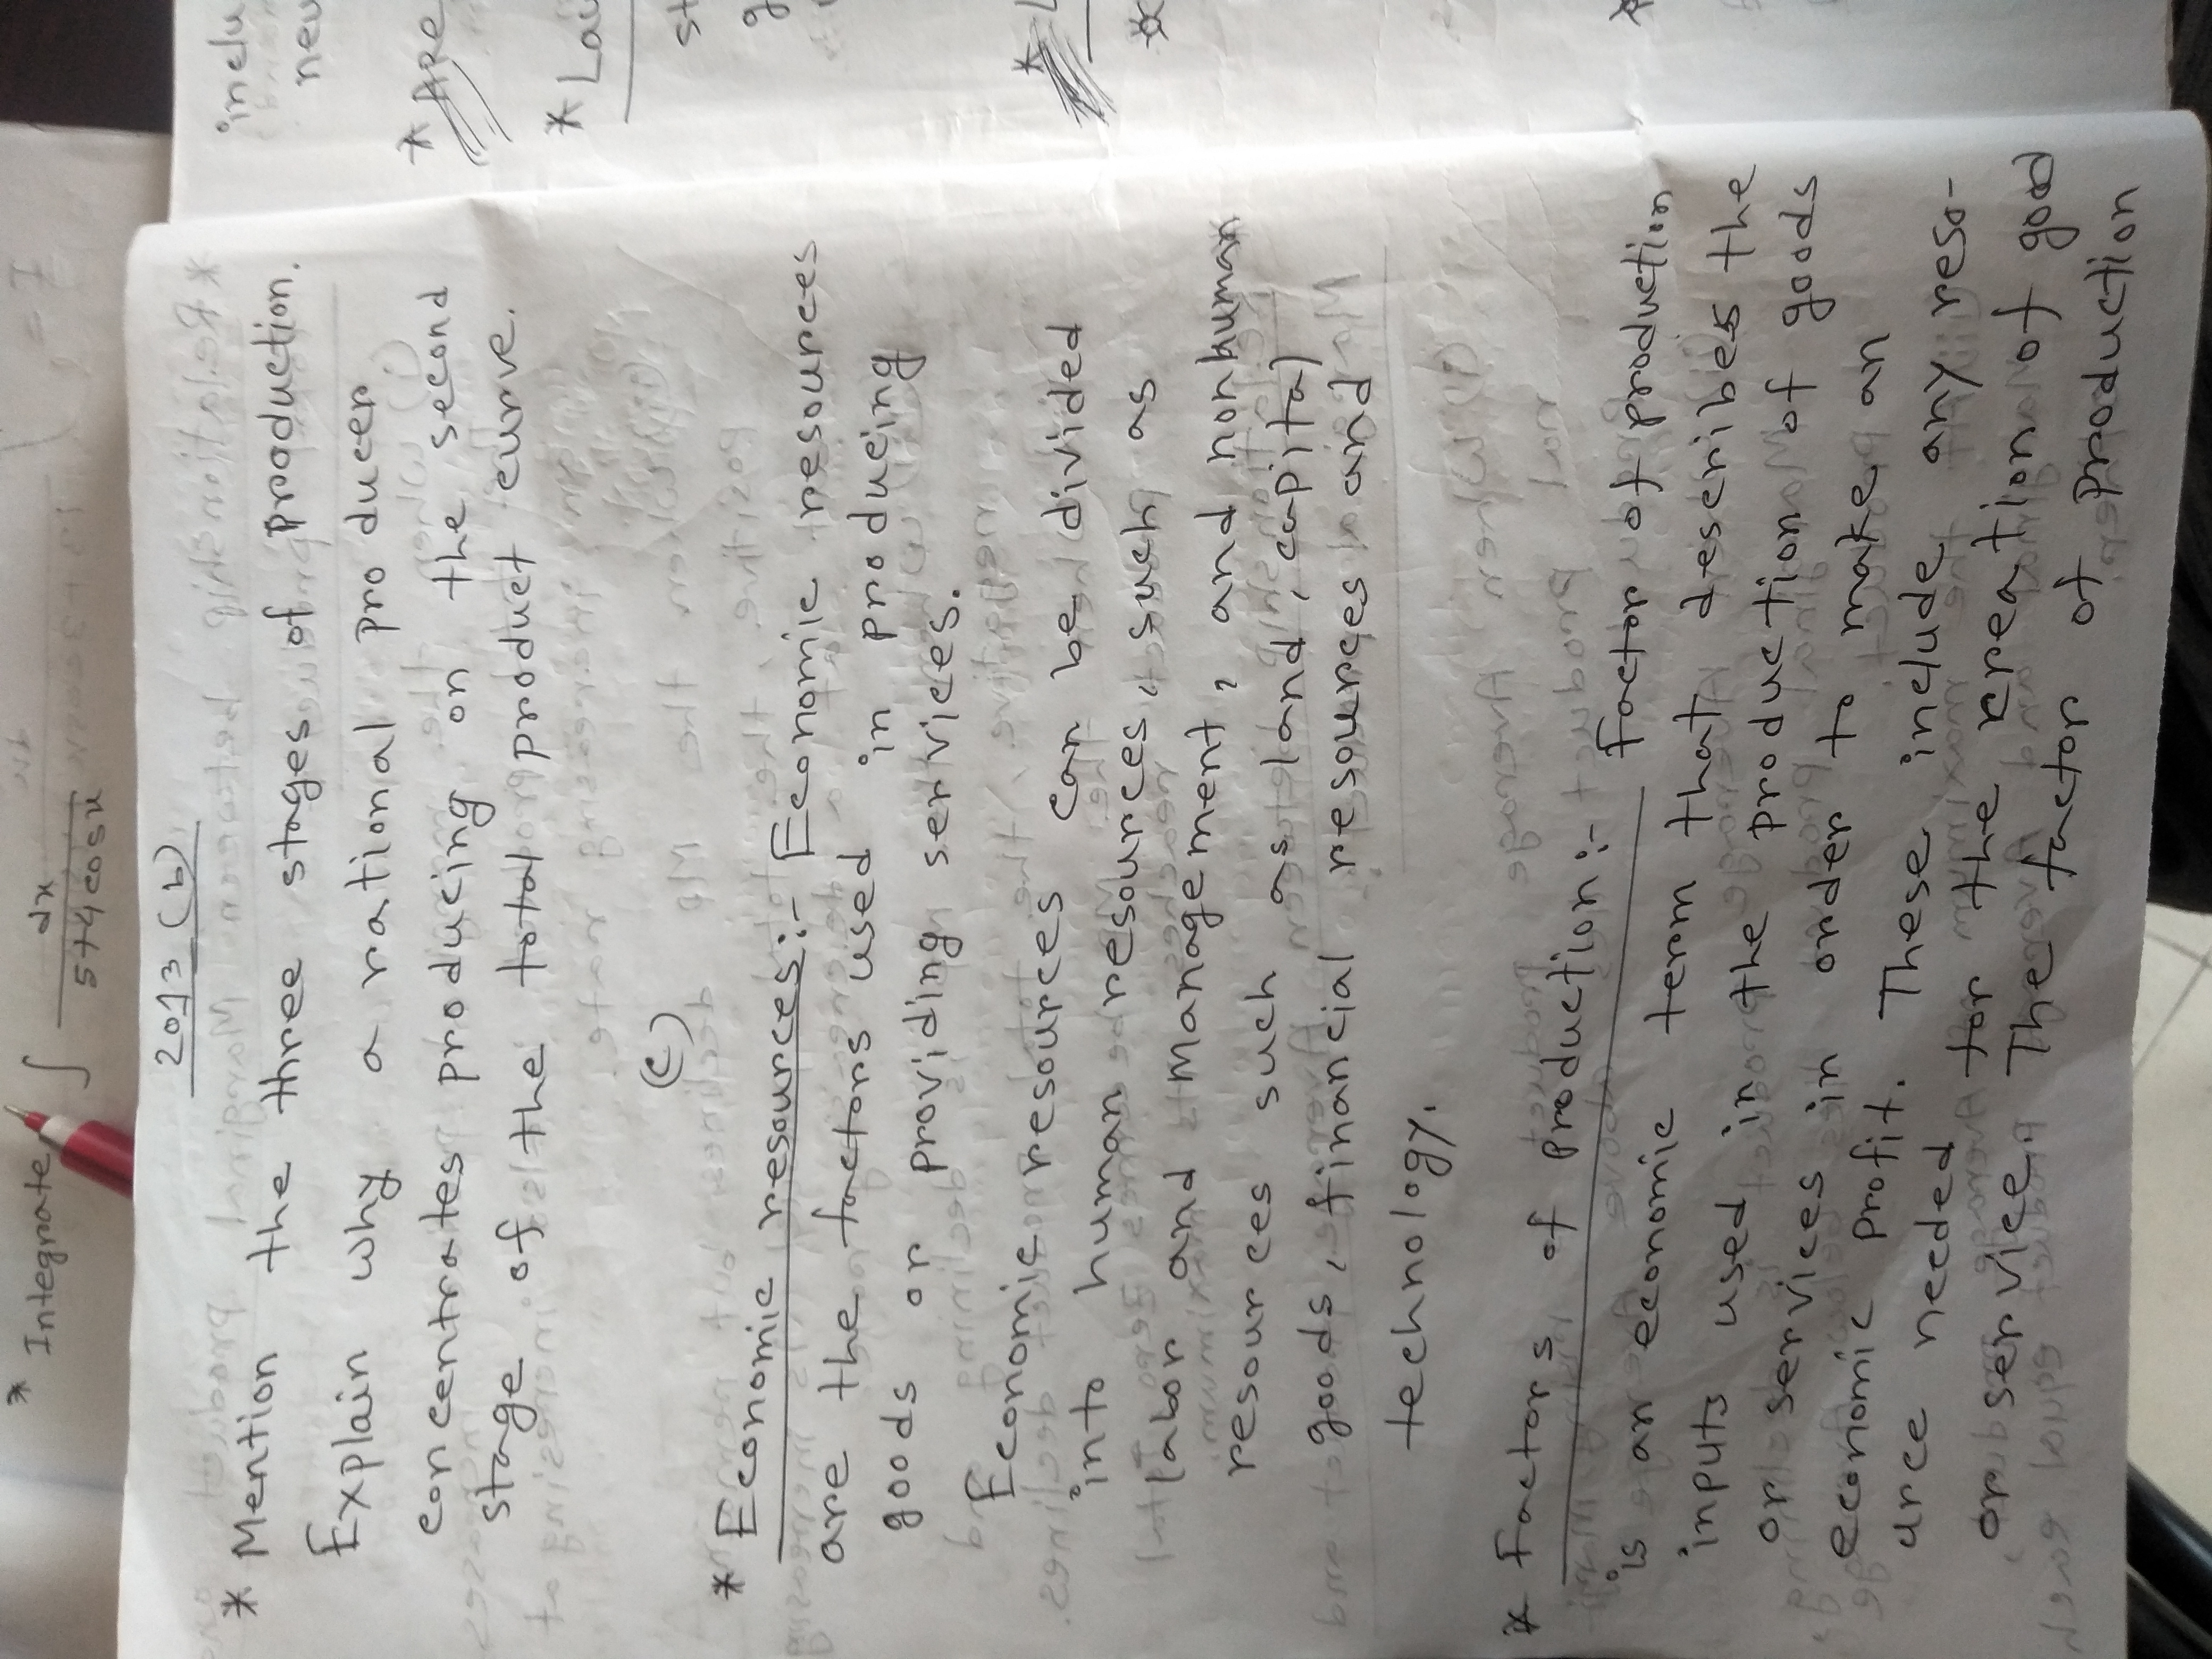 * Integrate ∫ dx
5+4cosx
2013 (b)
* Mention the three stages of production.
Explain why a rational producer
concentrates producing on the second
stage of the total product curve.
(c)
* Economic resources:- Economic resources
are the factors used in producing
goods or providing services.
Economic resources can be divided
into human resources, such as
labor and management, and nonhuman
resources such as land, capital
goods, financial resources and
technology.
* Factors of production:- Factor of production
is an economic term that describes the
inputs used in the production of goods
or services in order to make an
economic profit. These include any reso-
urce needed for the creation of good
or service. The factor of production
inclu
neu
* Are
* Law
st
g
* L